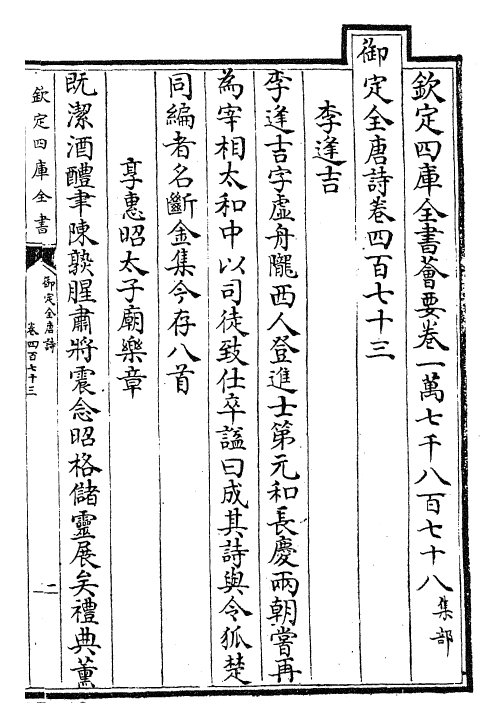 欽定四庫全書薈要卷一萬七千八百七十八集部
御定全唐詩卷四百七十三
李逢吉
李逢吉字虛舟隴西人登進士第元和長慶兩朝嘗再
為宰相太和中以司徒致仕卒謚曰成其詩與令狐楚
同編者名斷金集今存八首
享惠昭太子廟樂章
既潔酒醴聿陳孰腥肅將震念昭格儲靈展矣禮典薰
欽定四庫全書
御定全唐詩
卷四百七十三
一